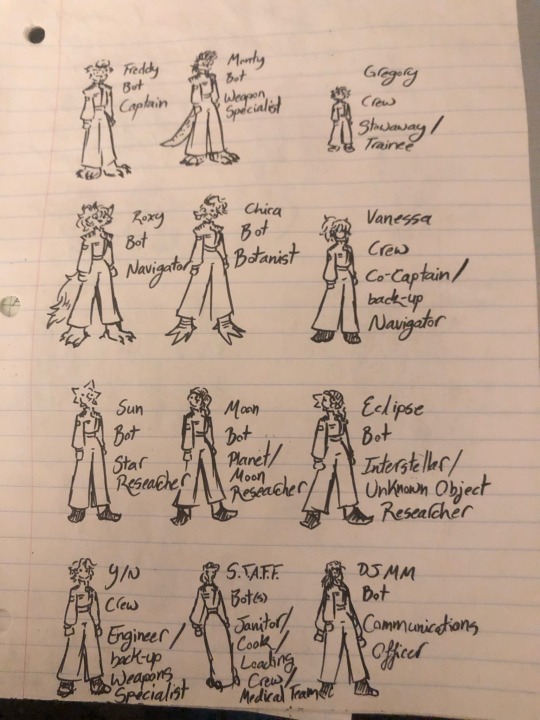 Freddy
Bot
Captain
Monty
Bot
Weapon
Specialist
Gregory
Crew
Stowaway/
Trainee
Roxy
Bot
Navigator
Chica
Bot
Botanist
Vanessa
Crew
Co-Captain/
back-up
Navigator
Sun
Bot
Star
Researcher
Moon
Bot
Planet/
Moon
Researcher
Eclipse
Bot
Interstellar/
Unknown Object
Researcher
Y/N
Crew
Engineer/
back-up
Weapons
Specialist
S.T.A.F.F.
Bot(s)
Janitor/
Cook/
Loading
Crew/
Medical Team
DJMM
Bot
Communications
Officer